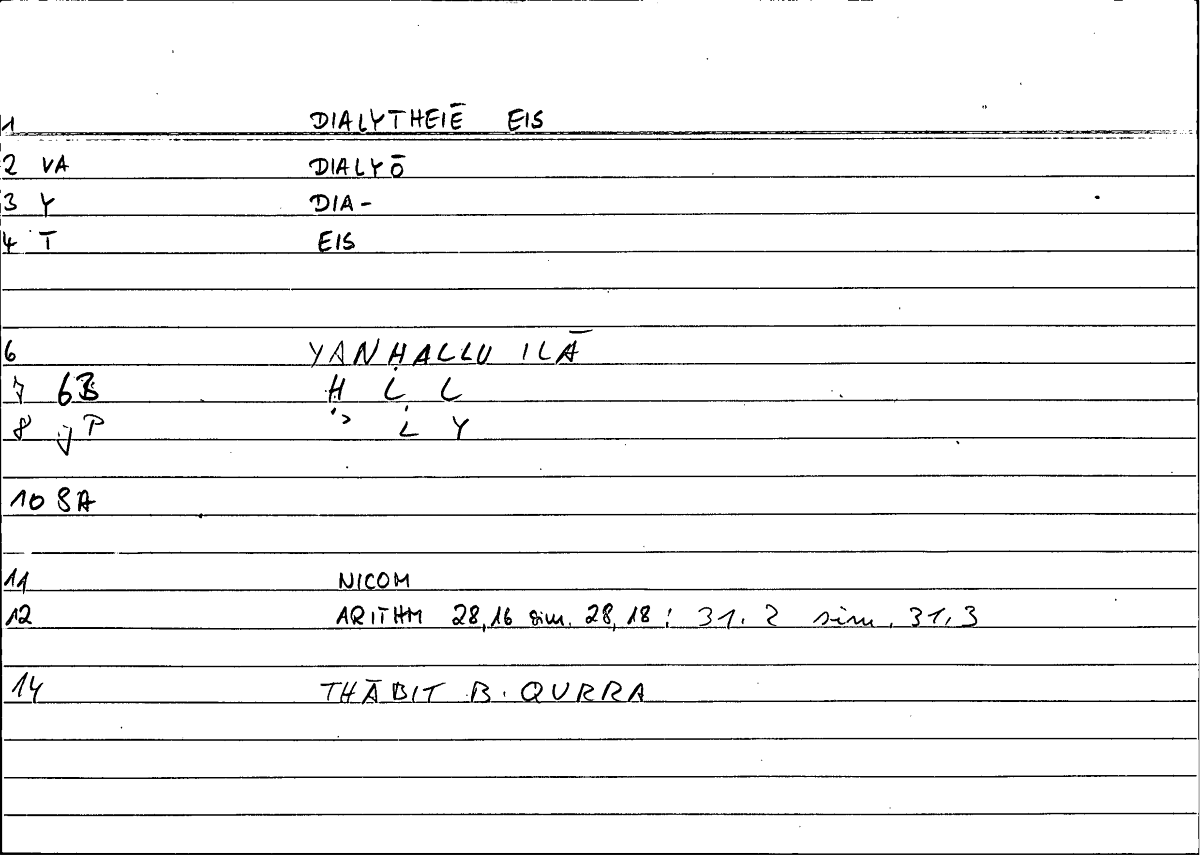 1 DIALYTHEIĒ EIS
2 VA DIALYŌ
3 Y DIA-
4 T EIS
6 YANḤALLU ILĀ
7 6B Ḥ L L
8 jP ʾ L Y
10 8A
11 NICOM
12 ARITHM 28,16 sim. 28,18 : 31.2 sim. 31,3
14 THĀBIT B. QURRA